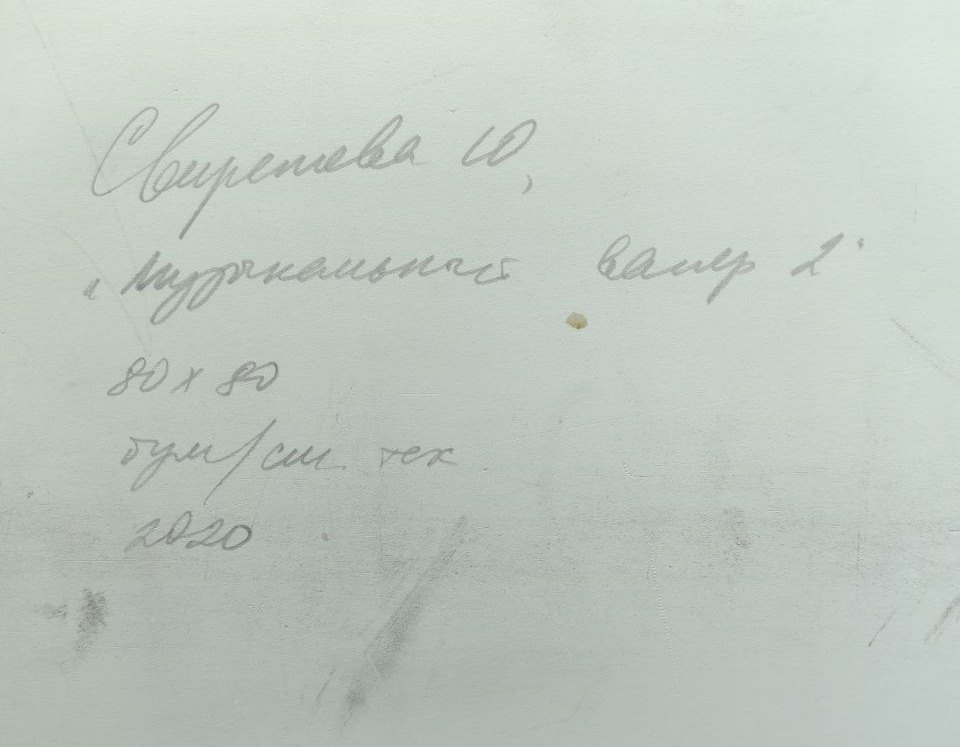 Свирепова Ю,
"Музыкальный валер 2"
80 x 80
бум/см. тех
2020